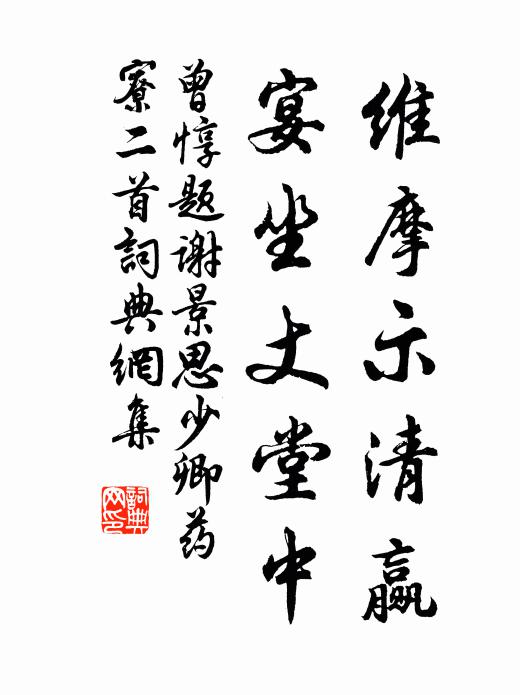 維摩示清羸
宴坐丈堂中
曾惇题谢景思少卿药
寮二首詞典網集
詞典
网印